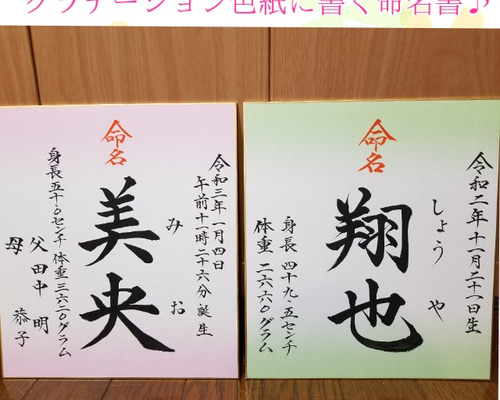 グラデーション色紙に書く命名書♪
命名
令和三年一月四日
午前十一時二十六分 誕生
みお
美央
身長 五十.〇センチ 体重 三六二〇グラム
父 田中 明
母 恭子
命名
令和二年十一月二十一日生
しょうや
翔也
身長 四十九.五センチ
体重 二六六〇グラム